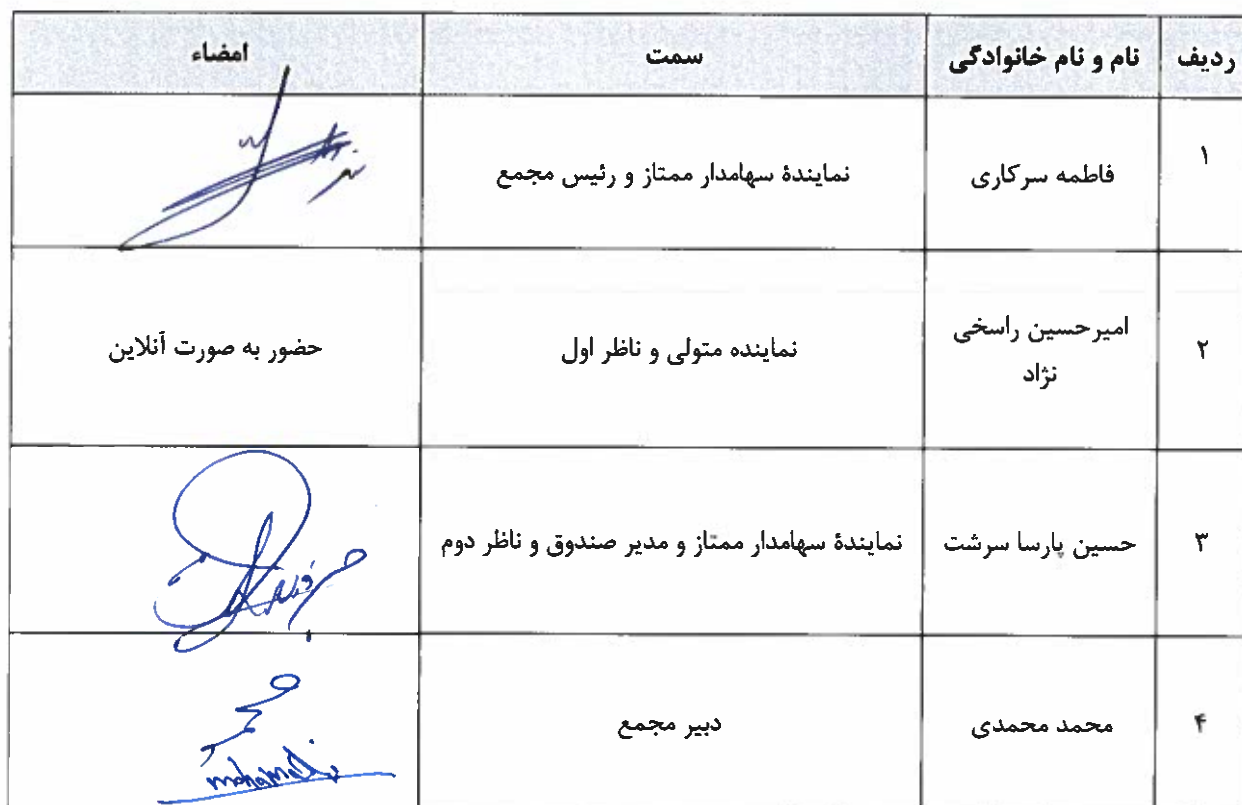 ردیف نام و نام خانوادگی سمت امضاء
۱ فاطمه سرکاری نمایندهٔ سهامدار ممتاز و رئیس مجمع
۲ امیرحسین راسخی نژاد نماینده متولی و ناظر اول حضور به صورت آنلاین
۳ حسین پارسا سرشت نمایندهٔ سهامدار ممتاز و مدیر صندوق و ناظر دوم
۴ محمد محمدی دبیر مجمع